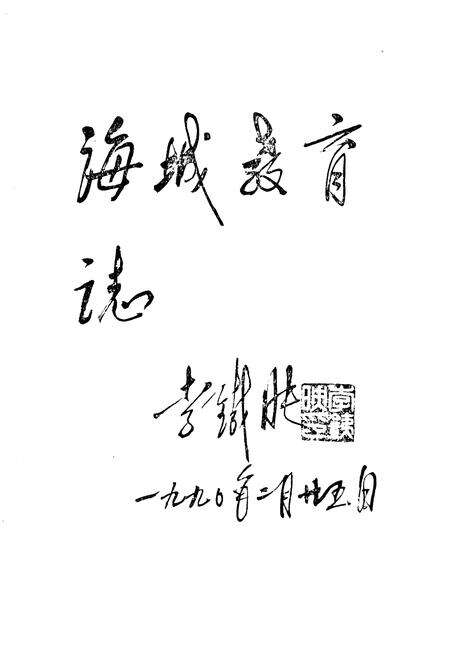 海城教育
誌
李鐵映
一九九〇年二月廿五日